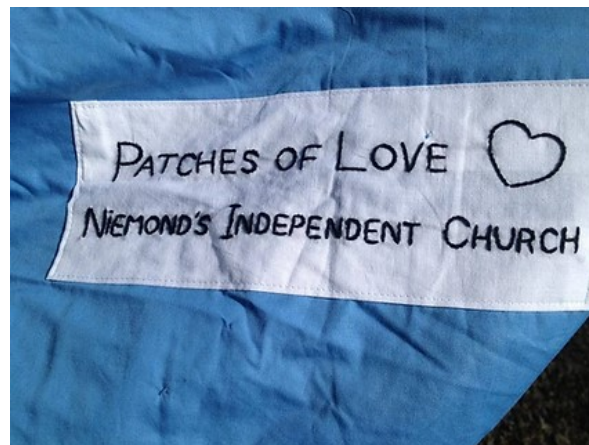 PATCHES OF LOVE
NIEMOND'S INDEPENDENT CHURCH